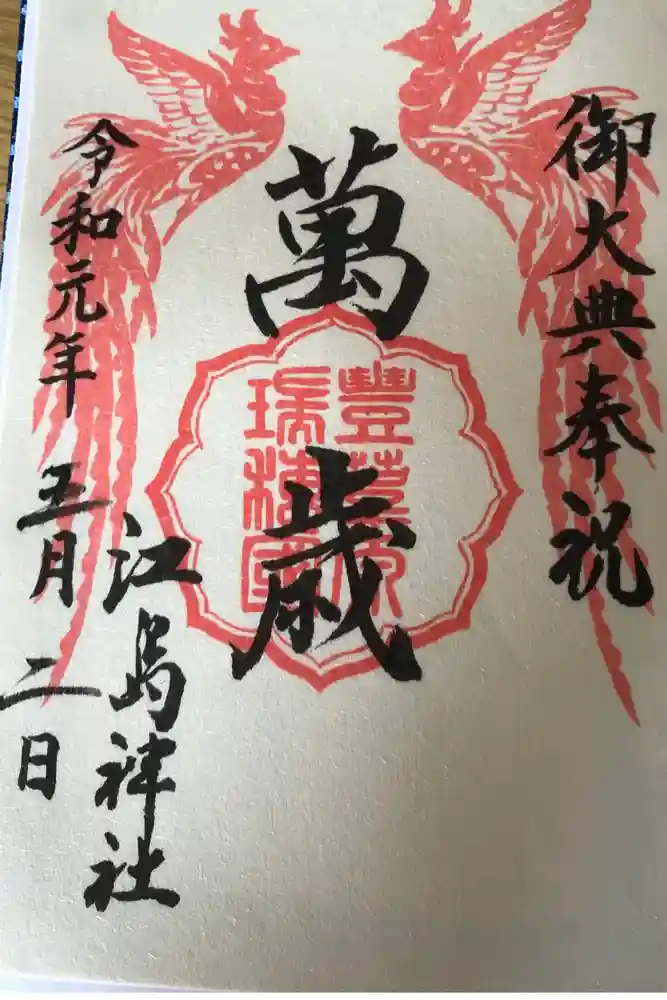 御大典奉祝
萬歳
豐葦原
瑞穂國
令和元年
五月二日
江島神社